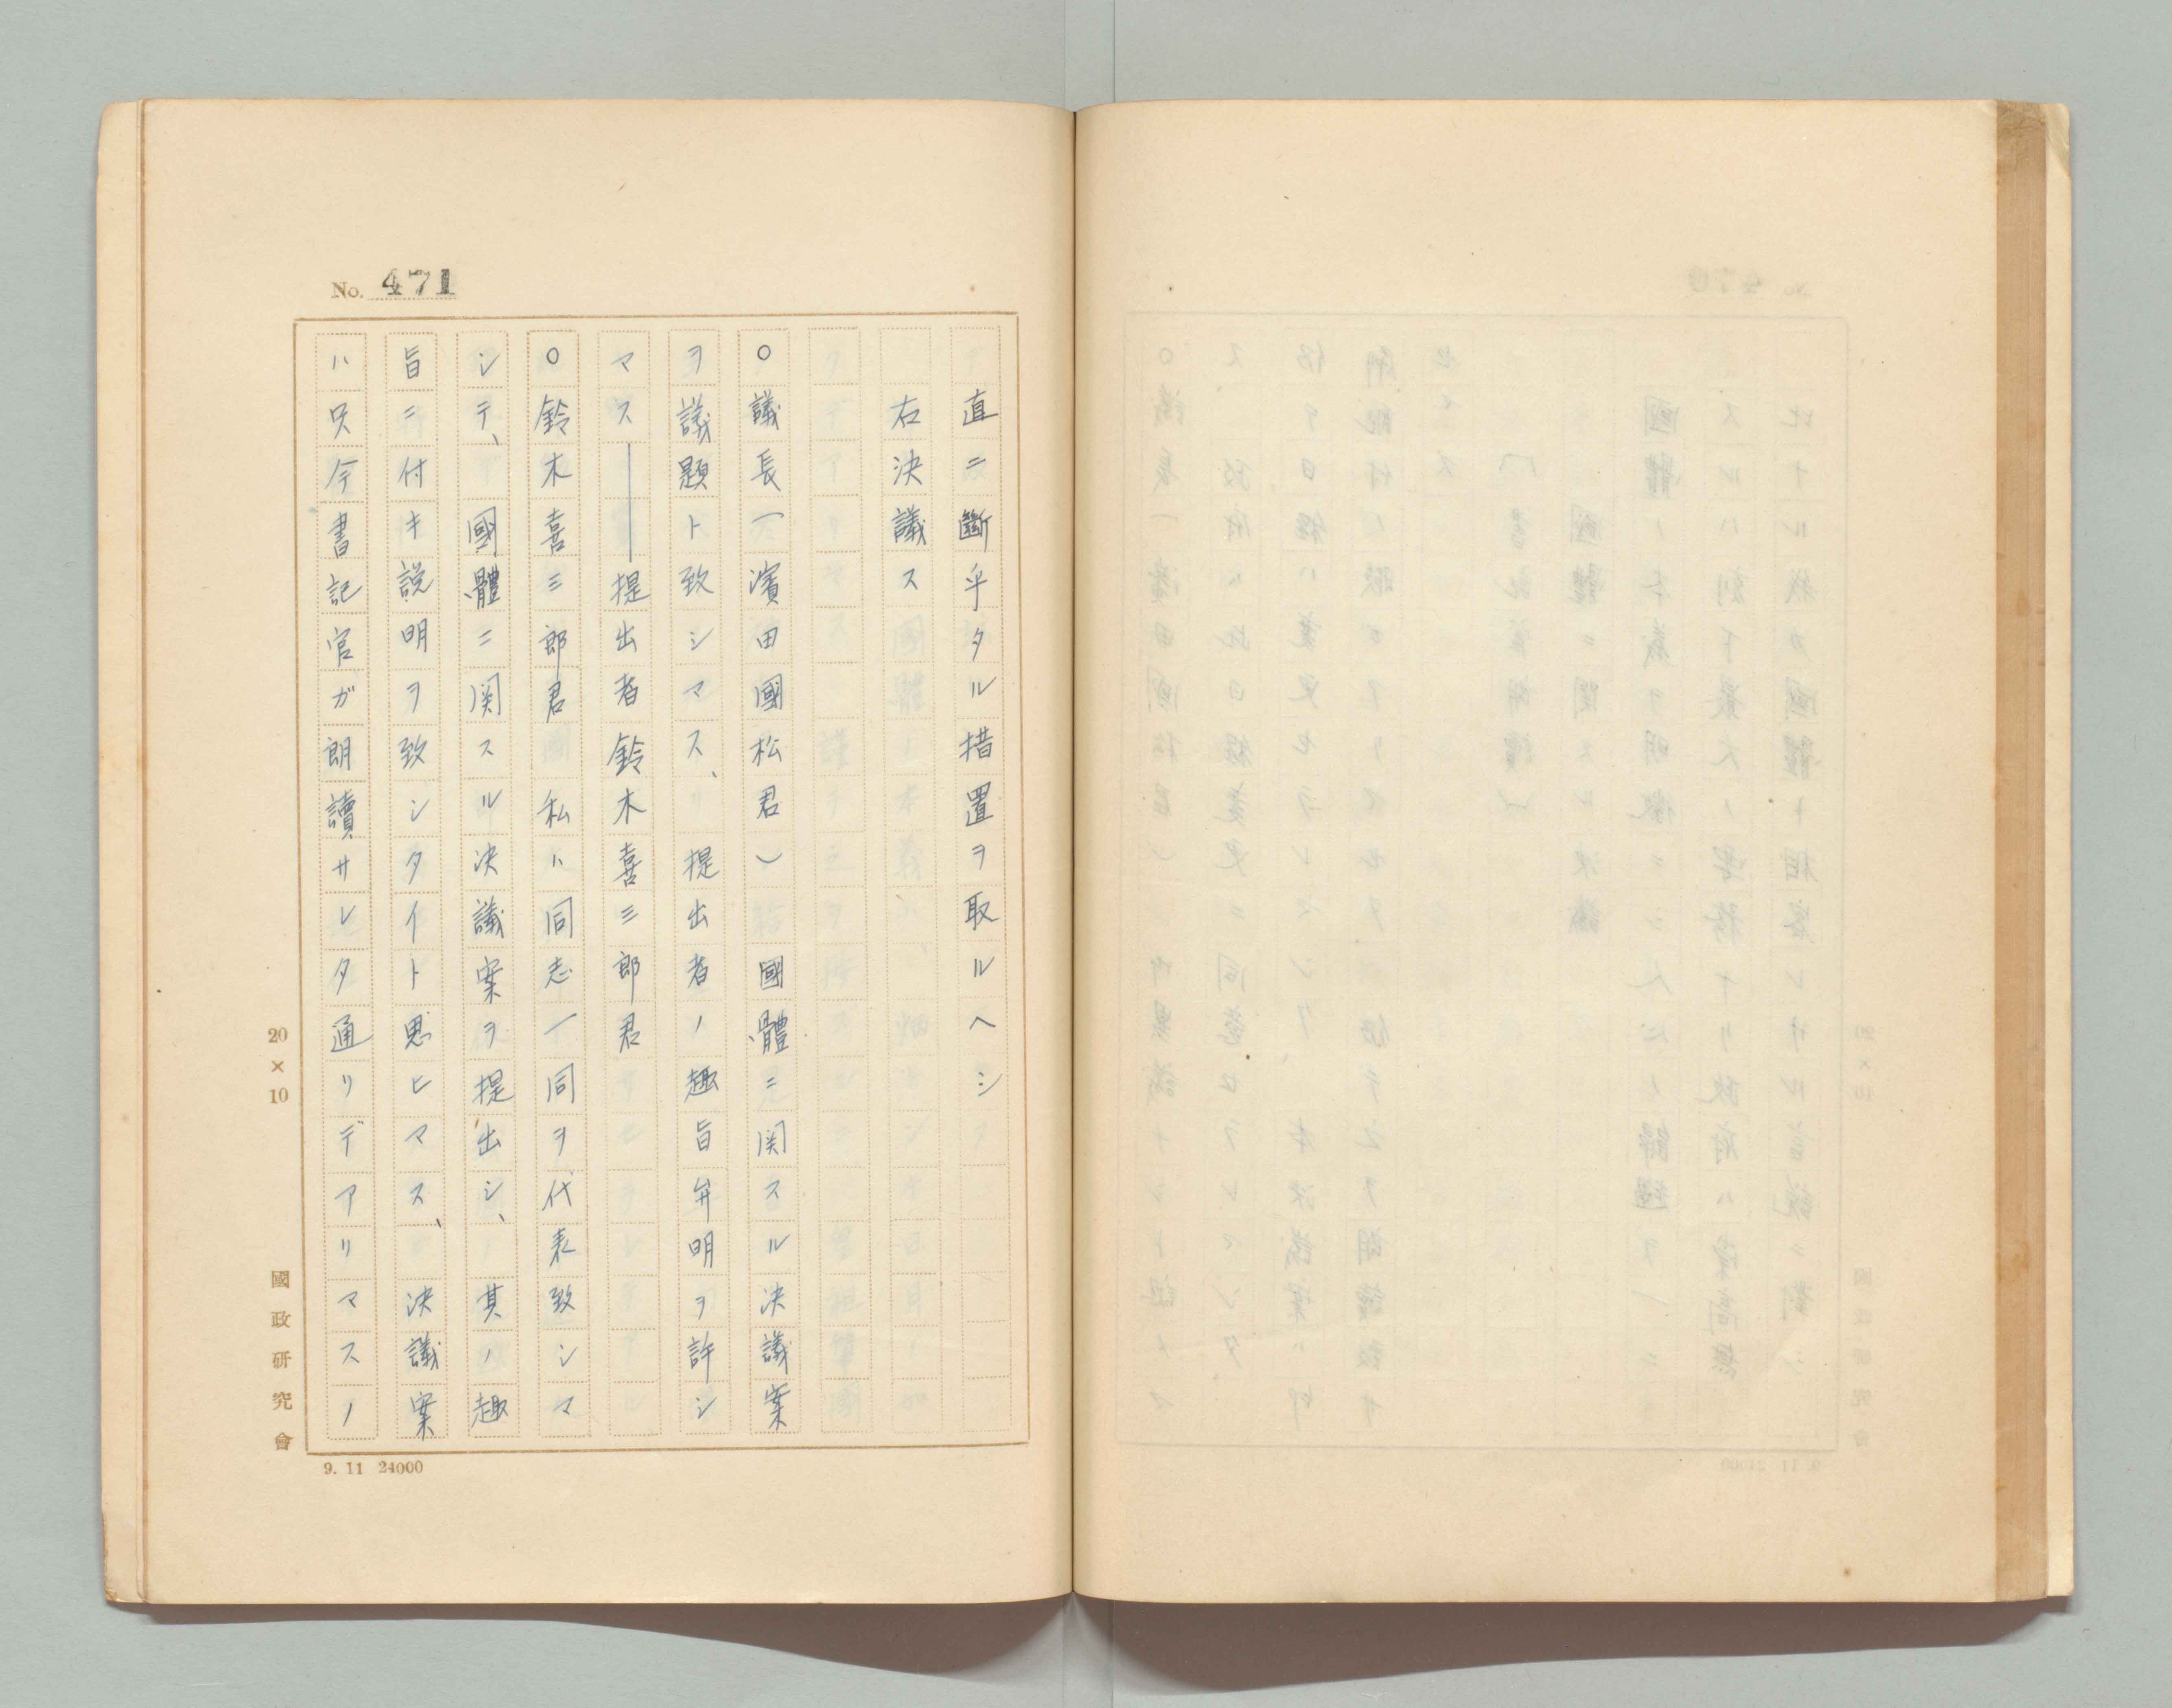 No. 471
直ニ斷乎タル措置ヲ取ルヘシ
右決議ス
○議長(濱田國松君) 國體ニ関スル決議案
ヲ議題ト致シマス、提出者ノ趣旨弁明ヲ許シ
マス――提出者鈴木喜三郎君
○鈴木喜三郎君 私ハ同志一同ヲ代表致シマ
シテ、國體ニ関スル決議案ヲ提出シ、其ノ趣
旨ニ付キ説明ヲ致シタイト思ヒマス、決議案
ハ只今書記官ガ朗讀サレタ通リデアリマスノ
20×10
國政研究會
9.11 24000